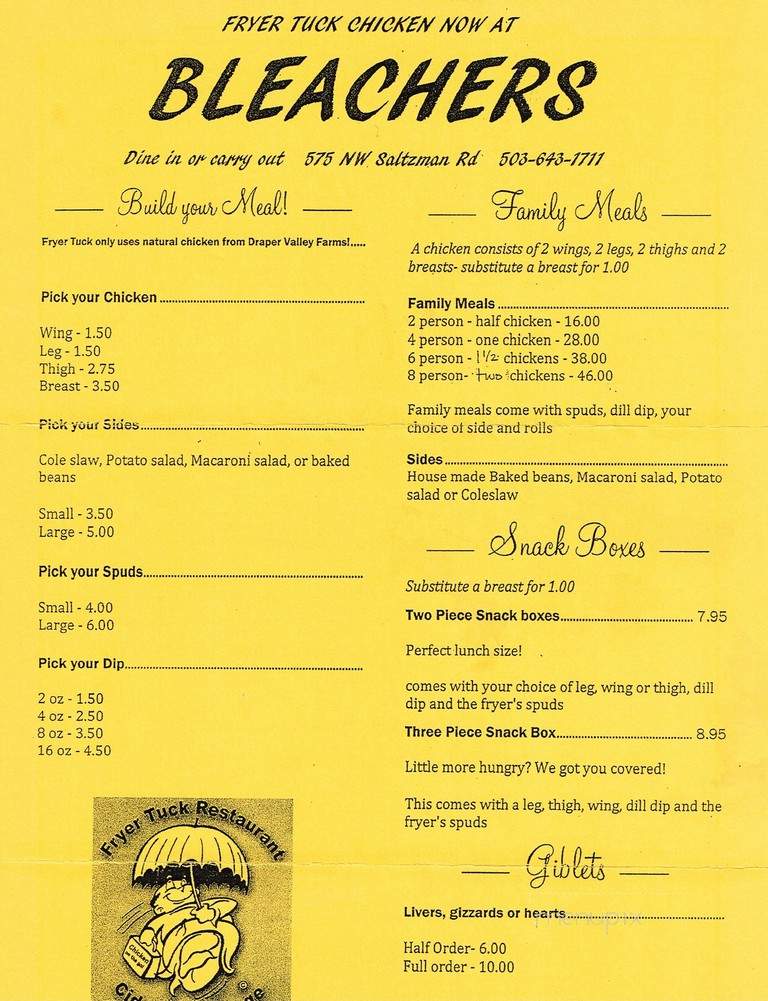 FRYER TUCK CHICKEN NOW AT
BLEACHERS
Dine in or carry out 575 NW Saltzman Rd 503-643-1711
Build your Meal!
Fryer Tuck only uses natural chicken from Draper Valley Farms!.....
Pick your Chicken
Wing - 1.50
Leg - 1.50
Thigh - 2.75
Breast - 3.50
Pick your Sides
Cole slaw, Potato salad, Macaroni salad, or baked
beans
Small - 3.50
Large - 5.00
Pick your Spuds
Small - 4.00
Large - 6.00
Pick your Dip
2 oz - 1.50
4 oz - 2.50
8 oz - 3.50
16 oz - 4.50
Fryer Tuck Restaurant
Chicken
on the go!
©
Family Meals
A chicken consists of 2 wings, 2 legs, 2 thighs and 2
breasts- substitute a breast for 1.00
Family Meals
2 person - half chicken - 16.00
4 person - one chicken - 28.00
6 person - 1 1/2 chickens - 38.00
8 person- two chickens - 46.00
Family meals come with spuds, dill dip, your
choice of side and rolls
Sides
House made Baked beans, Macaroni salad, Potato
salad or Coleslaw
Snack Boxes
Substitute a breast for 1.00
Two Piece Snack boxes 7.95
Perfect lunch size!
comes with your choice of leg, wing or thigh, dill
dip and the fryer's spuds
Three Piece Snack Box 8.95
Little more hungry? We got you covered!
This comes with a leg, thigh, wing, dill dip and the
fryer's spuds
Giblets
Livers, gizzards or hearts
menupix
Half Order- 6.00
Full order - 10.00